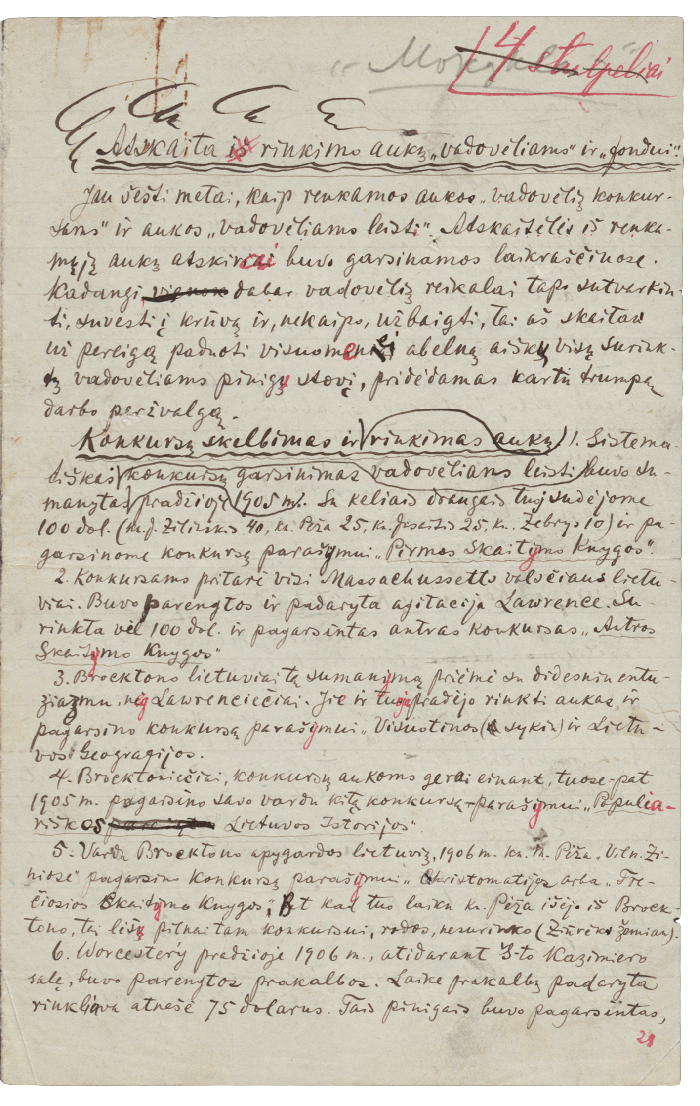 14 stulpeliai
Atskaita iš rinkimo aukų „vadovėliams" ir „fondui".
Jau šešti metai, kaip renkamos aukos „vadovėlių konkur-
sams" ir aukos „vadovėliams leisti". Atskaitėlės iš renka-
mųjų aukų atskirai buvo garsinamos laikraščiuose.
Kadangi dabar vadovėlių reikalai tapo sutvarkin-
ti, suvesti į krūvą ir, nekaipo, užbaigti, tai aš skaitau
už pareigą paduoti visuomenei abelną aiškų visų surink-
tų vadovėliams pinigų stovį, pridėdamas kartu trumpą
darbo peržvalgą.
Konkursų skelbimas ir rinkimas aukų. 1. Sistema-
tiškas konkursų garsinimas vadovėlians leisti buvo su-
manytas pradžioje 1905 m. Su keliais draugais tuj sudėjome
100 dol. (kn. J. Žilinskis 40, kn. Pėža 25, kn. Jusaitis 25, kn. Žebrys 10) ir pa-
garsinome konkursą parašymui „Pirmos Skaitymo Knygos".
2. Konkursams pritarė visi Massachussetto valsčiaus lietu-
viai. Buvo parengtos ir padaryta agitacija Lawrence. Su-
rinkta vėl 100 dol. ir pagarsintas antras konkursas „Antros
Skaitymo Knygos"
3. Brocktono lietuviai tą sumanymą priėmė su didesniu entu-
ziazmu, neg Lawrenciečiai. Jie ir tuoj pradėjo rinkti aukas ir
pagarsino konkursą parašymui „Visuotinos (sykiu) ir Lietu-
vos Geografijos.
4. Brocktoniečiai, konkursų aukoms gerai einant, tuose-pat
1905 m. pagarsino savo vardu kitą konkursą-parašymui „Populia-
riškos Lietuvos Istorijos".
5. Vardu Brocktono apygardos lietuvių, 1906 m. kn. M. Pėža „Viln. Ži-
niose" pagarsino konkursą parašymui „Christomatijos arba „Tre-
čiosios Skaitymo Knygos", Bet kad tuo laiku kn. Pėža išėjo iš Brock-
tono, tai lišų pilnai tam konkursui, rodos, nesurinko (Žiūrėk žemiau).
6. Worcester'y pradžioje 1906 m., atidarant Š-to Kazimiero
salę, buvo parengtos prakalbos. Laike prakalbų padaryta
rinkliava atnešė 75 dolarus. Tais pinigais buvo pagarsintas,